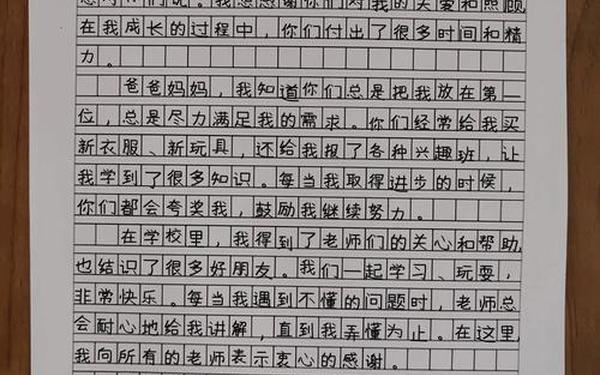 想对你们说。我想感谢你们对我的关爱和照顾
在我成长的过程中，你们付出了很多时间和精
力。
爸爸妈妈，我知道你们总是把我放在第一
位，总是尽力满足我的需求。你们经常给我买
新衣服、新玩具，还给我报了各种兴趣班，让
我学到了很多知识。每当我取得进步的时候，
你们都会夸奖我，鼓励我继续努力。
在学校里，我得到了老师们的关心和帮助，
也结识了很多好朋友。我们一起学习、玩耍，
非常快乐。每当我遇到不懂的问题时，老师总
会耐心地给我讲解，直到我弄懂为止。在这里，
我向所有的老师表示衷心的感谢。